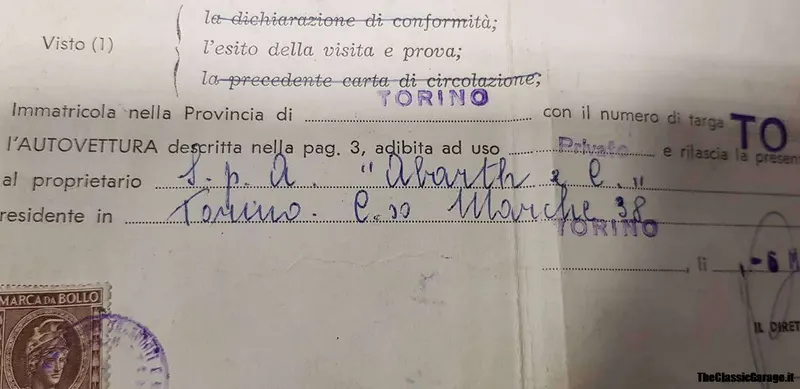 la dichiarazione di conformità;
Visto (1) l'esito della visita e prova;
la precedente carta di circolazione;
TORINO
Immatricola nella Provincia di con il numero di targa TO
l'AUTOVETTURA descritta nella pag. 3, adibita ad uso Privato e rilascia la presen
al proprietario S.p.A. "Abarth & C."
residente in Torino. C.so Marche 38
TORINO
, lì -6 M
MARCA DA BOLLO
IL DIRET
TheClassicGarage.it